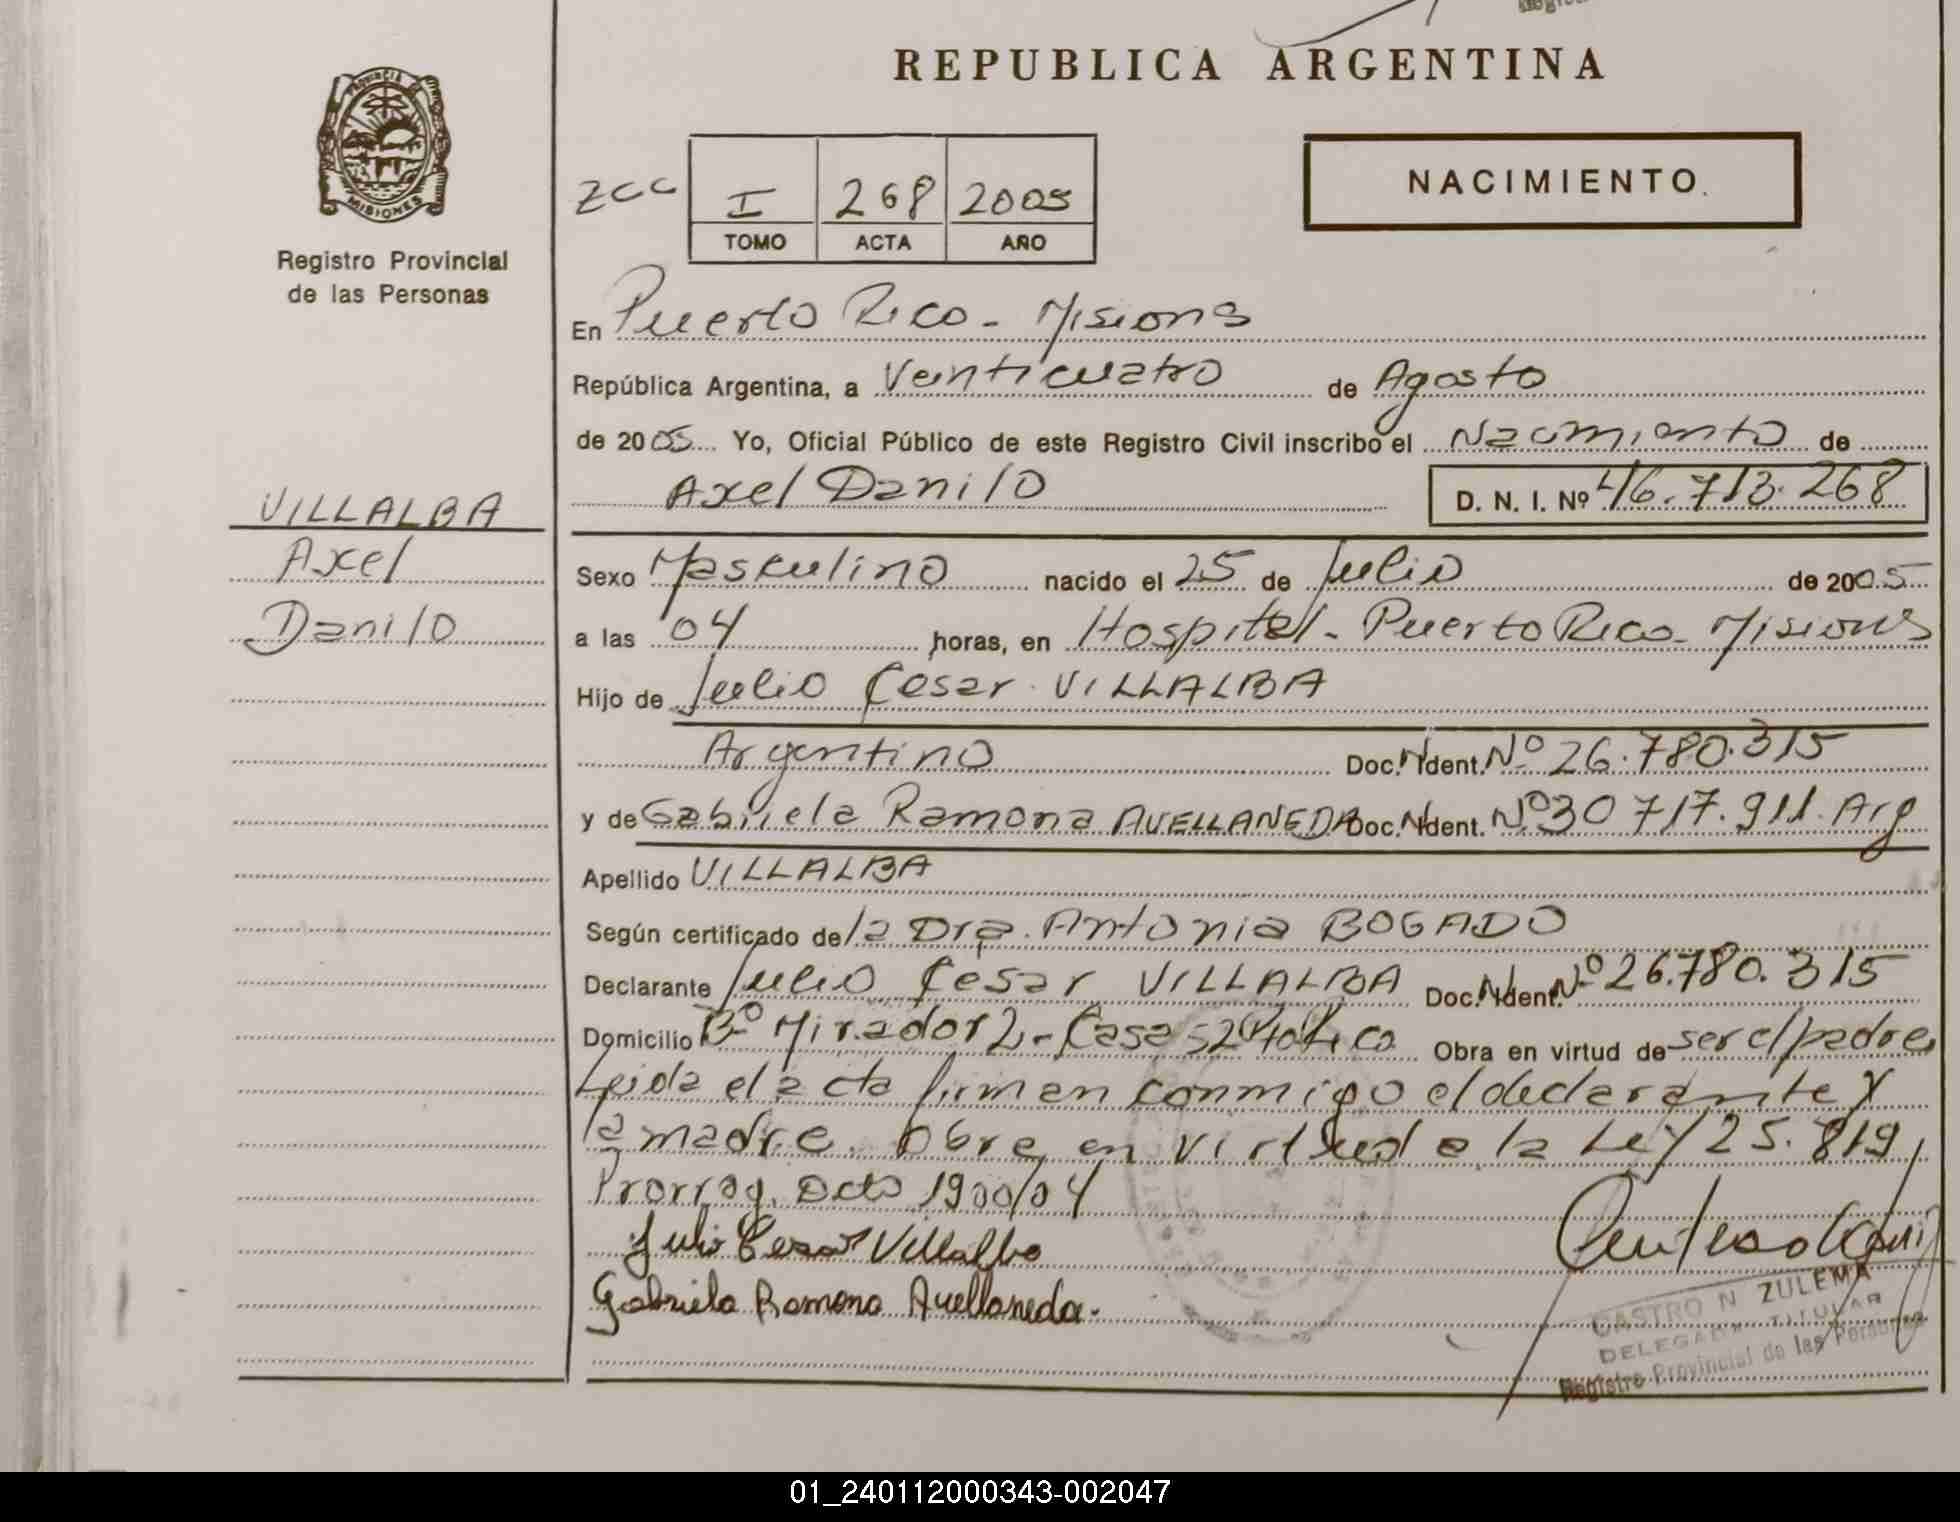 REPUBLICA ARGENTINA
PROVINCIA DE
MISIONES
Registro Provincial
de las Personas
zcc I 268 2005
TOMO ACTA AÑO
NACIMIENTO
En Puerto Rico - Misions
República Argentina, a Veinticuatro de Agosto
de 2005 Yo, Oficial Público de este Registro Civil inscribo el Nacimiento de
Axel Danilo D. N. I. Nº 46.713.268
VILLALBA
Axel
Danilo
Sexo Masculino nacido el 25 de Julio de 2005
a las 04 horas, en Hospital - Puerto Rico - Misions
Hijo de Julio Cesar VILLALBA
Argentino Doc. Ident. Nº 26.780.315
y de Gabriela Ramona AVELLANEDA Doc. Ident. Nº 30 717.911. Arg
Apellido VILLALBA
Según certificado de la Dra. Antonia BOGADO
Declarante Julio Cesar VILLALBA Doc. Ident. Nº 26.780.315
Domicilio Bº Mirador 2 - Casa 52 Pto Rico Obra en virtud de ser el padre,
Leida el acta firman conmigo el declarante y
la madre. Obra en virtud a la Ley 25.819,
Prorrog. Dcto 1900/04
Julio Cesar Villalba
Gabriela Ramona Avellaneda.
CASTRO N ZULEMA
DELEGADA TITULAR
Registro Provincial de las Personas
01_240112000343-002047